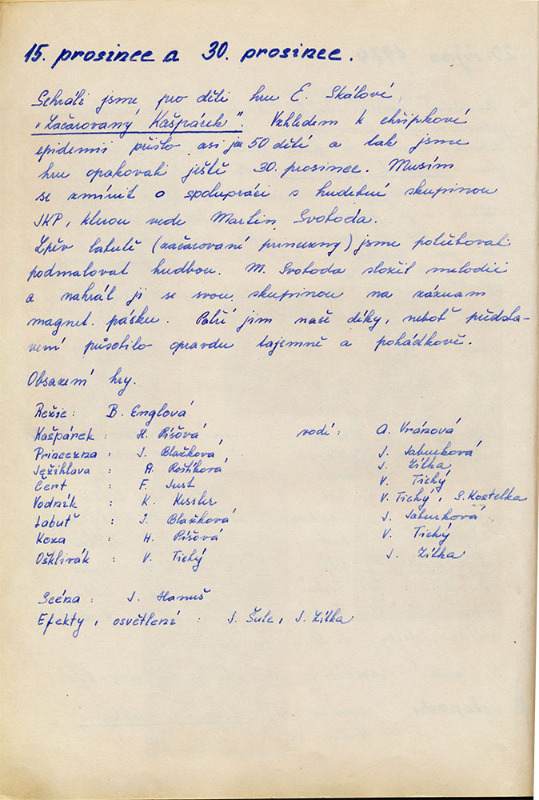 15. prosince a 30. prosince.
Sehráli jsme pro děti hru E. Skálové,
"Začarovaný Kašpárek". Vzhledem k chřipkové
epidemii přišlo asi jen 50 dětí a tak jsme
hru opakovali ještě 30. prosince. Musím
se zmínit o spolupráci s hudební skupinou
JKP, kterou vede Martin Svoboda.
Zpěv labutě (začarované princezny) jsme potřebovali
podmalovat hudbou. M. Svoboda složil melodii
a nahrál ji se svou skupinou na záznam
magnet. pásku. Patří jim naše díky, neboť předsta-
vení působilo opravdu tajemně a pohádkově.
Obsazení hry.
Režie: B. Englová
Kašpárek: H. Píšová, vodí: A. Vránová
Princezna: J. Blažková J. Jaburková
Ježihlava: A. Roštíková J. Zítka
Čert: F. Just V. Tichý
Vodník: K. Kessler V. Tichý, S. Kostelka
Labuť: J. Blažková J. Jaburková
Koza: H. Píšová V. Tichý
Ošklivák: V. Tichý J. Zítka
Scéna: J. Hanuš
Efekty, osvětlení: J. Šulc, J. Zítka